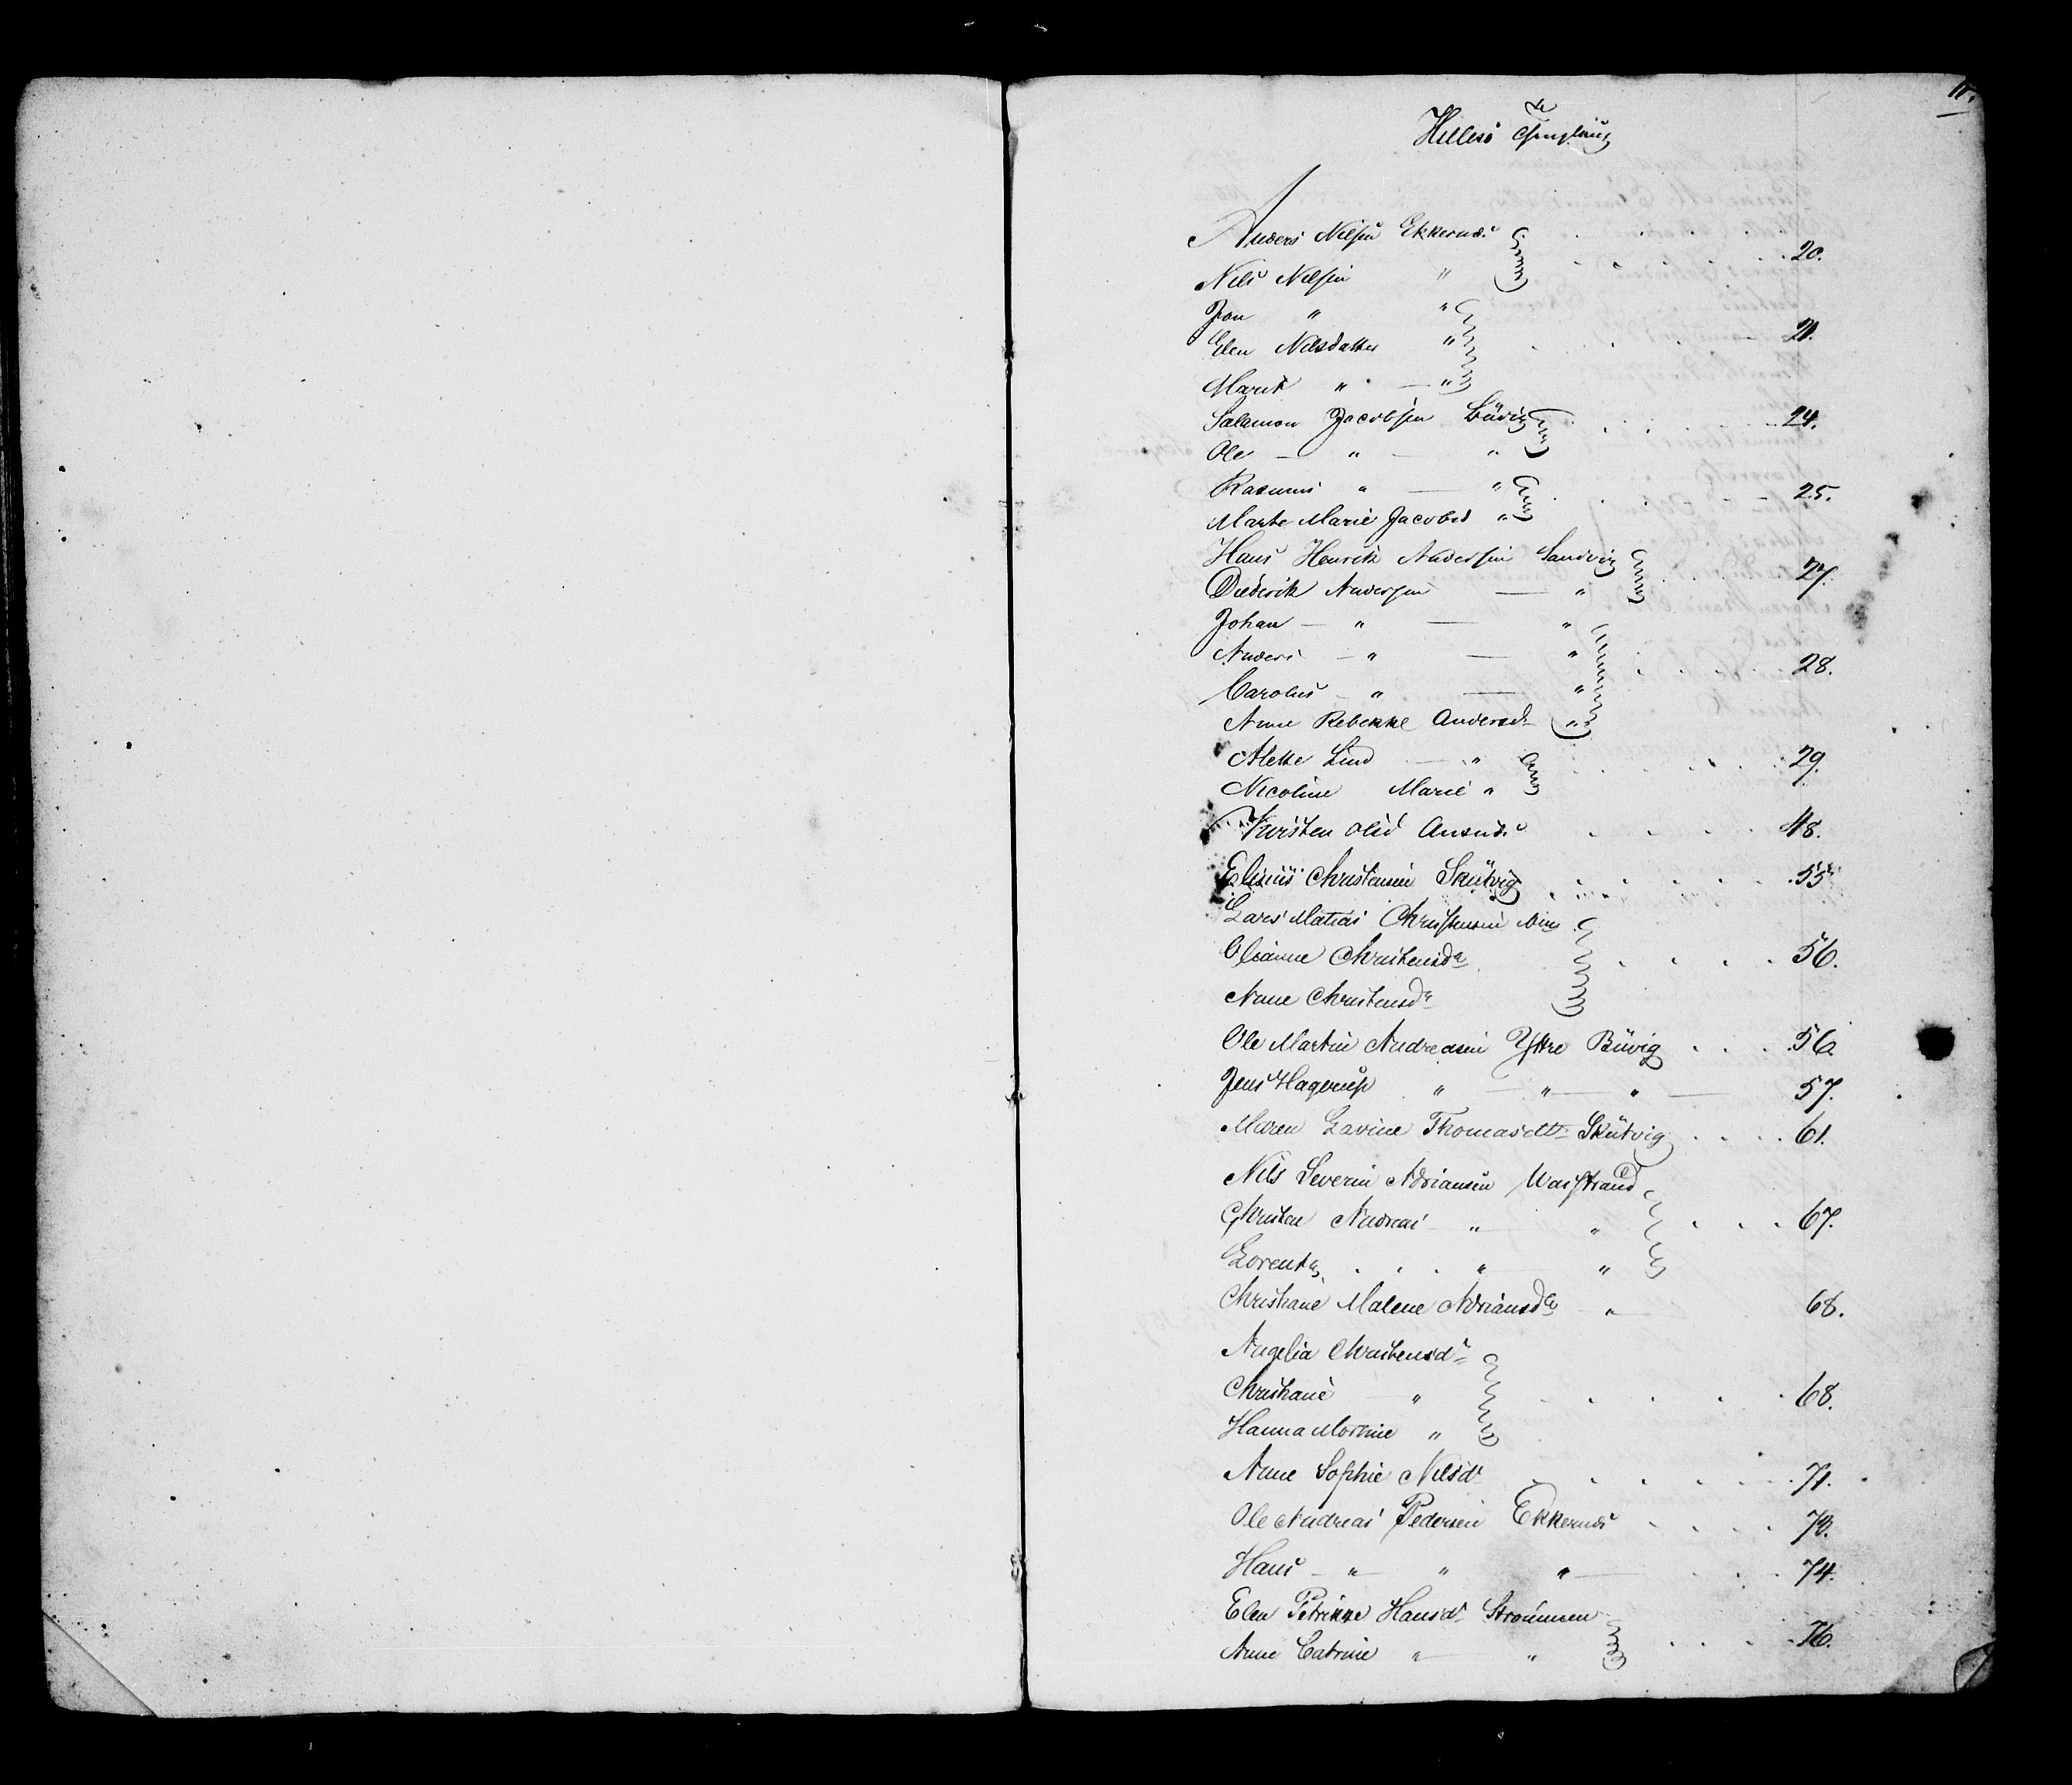 11.
Hillesö Thinglaug
Anders Nilsen Ekkernæs
20.
Nils Nilsen "
Jon " "
Elen Nilsdatter " 21.
Marit " "
Salamon Jacobsen Buvig 24.
Ole " "
Rasmus " " 25.
Marte Marie Jacobsd "
Hans Henrik Andersen Sandvig 27.
Diderik Andersen "
Johan " "
Anders " " 28.
Carolus " "
Anne Rebekke Andersd "
Alette Lind " 29.
Nicoline Marie "
Kirsten Olsd 48.
Elisius Christensen Skutvig 55
Lars Matias Christensen
Olianne Christensdr 56.
Anne Christensdr
Ole Martin Andreasen Yttre Buvig 56
Jens Hagerup " " " 57.
Maren Lavine Thomasdtr Skutvig 61.
Nils Severin Adriansen
Christen Andreas " " 67.
Lorents " "
Christiane Malene Adriansdr " 68.
Angelia Christensdr
Christiane " 68.
Hanna Martine "
Anne Sophie Nilsdr 71.
Ole Andreas Pedersen Ekkernæs 73.
Hans " " " 74.
Elen Petrikke Hansdr Strømmen
Anne Catrine " " 76.